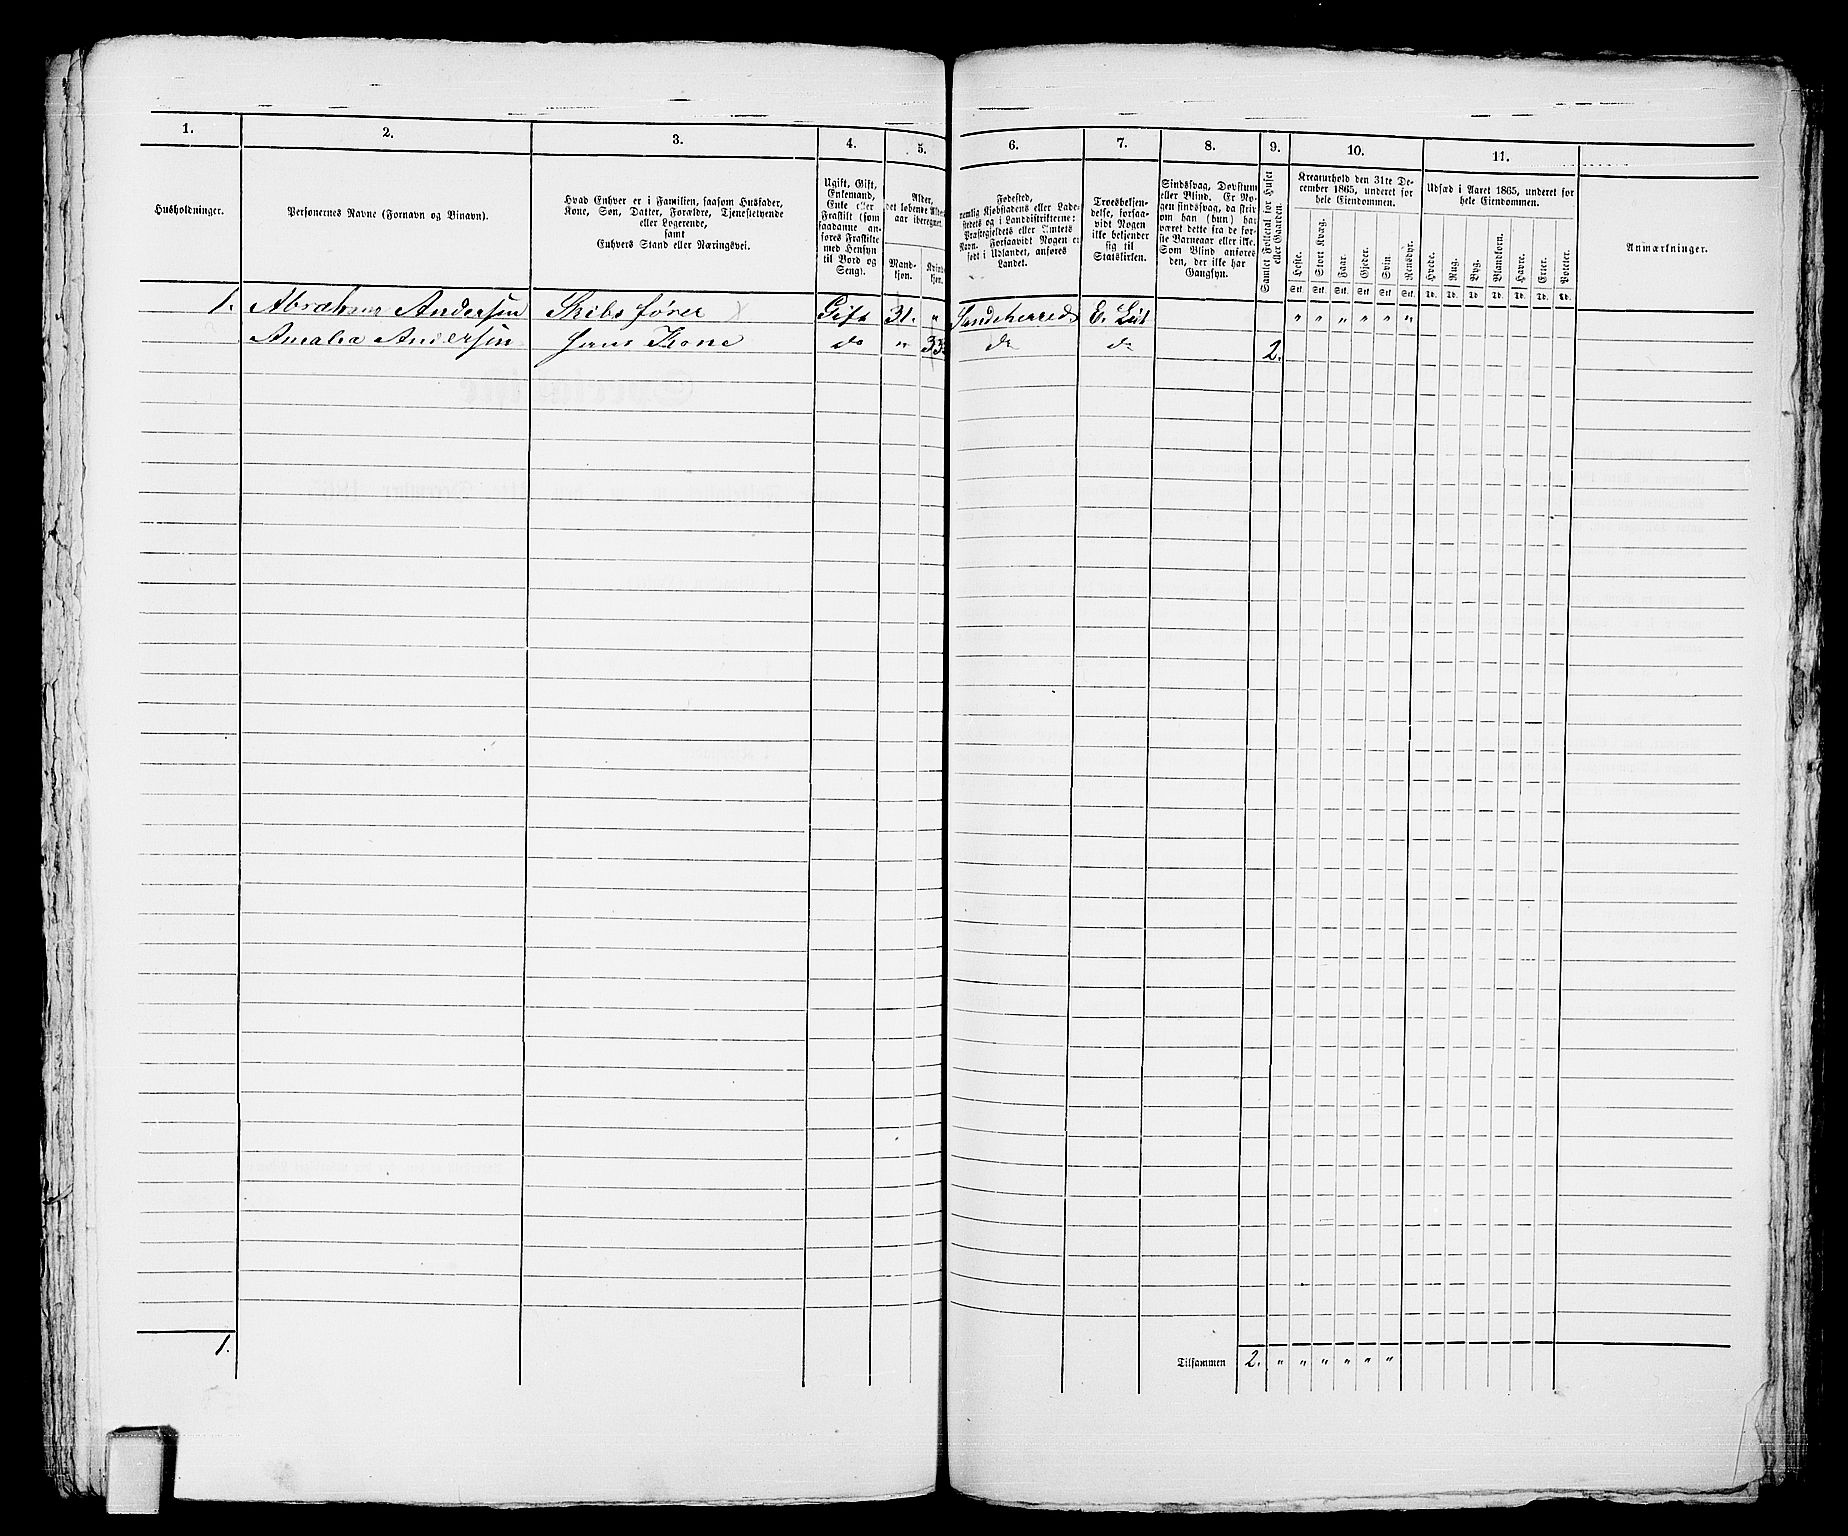 1. 2. 3. 4. 5. 6. 7. 8. 9. 10. 11.
Husholdninger.
Personernes Navne (Fornavn og Tilnavn).
Hvad Enhver er i Familien, saasom Husfader,
Kone, Søn, Datter, Forældre, Tjenestetyende
eller Logerende,
samt
Enhvers Stand eller Næringsvei.
Ugift, Gift,
Enkemand,
Enke eller
Fraskilt (som
saadanne an-
føres Fraskilte
med Hensyn
til Bord og
Seng).
Alder,
det løbende Alders-
aar iberegnet.
Mand-
kjøn.
Kvinde-
kjøn.
Fødested,
nemlig Kjøbstadens eller Lade-
stedets og i Landdistrikterne:
Præstegjeldets eller Amtets
Navn. Forsaavidt Nogen er
født i Udlandet, anføres
Landet.
Troesbekjen-
delse, forsaa-
vidt Nogen
ikke bekjender
sig til
Statskirken.
Sindssvag, Døvstum
eller Blind. Er No-
gen sindssvag, da skriv
om han (hun) har
været dette fra de før-
ste Barneaar eller ikke.
Som Blind anføres
den, der ikke har
Gangsyn.
Samlet Folketal for Huset
eller Gaarden.
Kreaturhold den 31te De-
cember 1865, underet for
hele Eiendommen.
Heste. Stort Kvæg. Faar. Gjeder. Sviin. Rensdyr.
Stk. Stk. Stk. Stk. Stk. Stk.
Udsæd i Aaret 1865, underet for
hele Eiendommen.
Hvede. Rug. Byg. Blandkorn. Havre. Erter. Poteter.
Td. Td. Td. Td. Td. Td. Td.
Anmærkninger.
1. Abrahm Andersen Skibsfører Gift 31. " Sandeherred E. Lut " " " " " "
Amalia Andersen Hans Kone do " 33 do do 2.
1. Tilsammen 2. " " " " " "